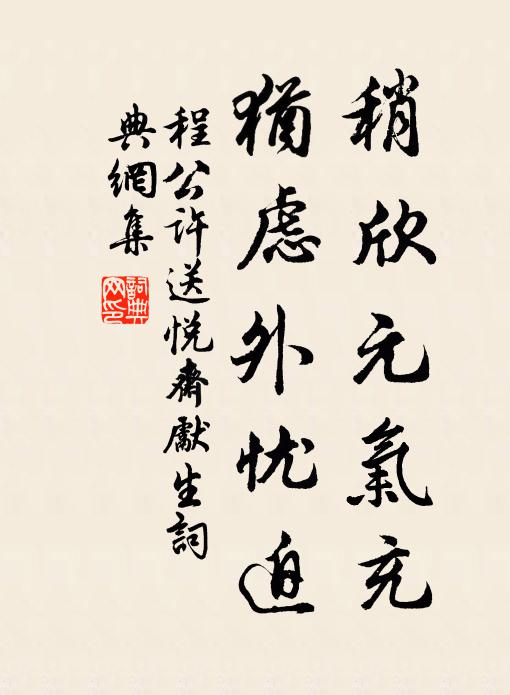 稍欣元氣充
猶慮外忧迫
程公許送悦齋獻生詞
典網集
詞典
网印